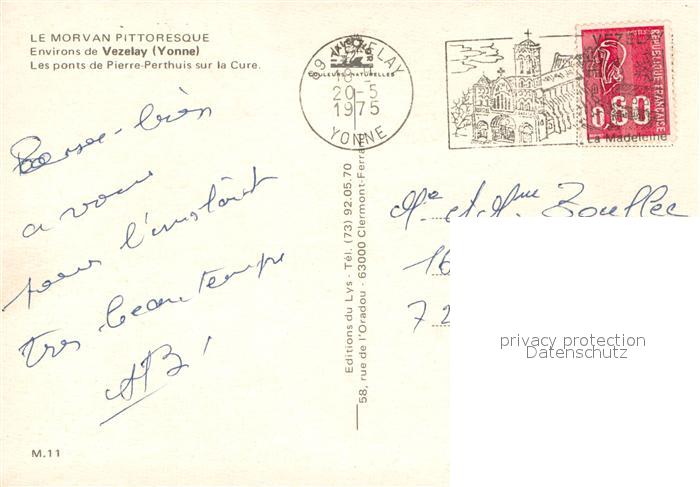 LE MORVAN PITTORESQUE
Environs de Vezelay (Yonne)
Les ponts de Pierre-Perthuis sur la Cure.
89 VEZELAY
20-5
1975
YONNE
COULEURS NATURELLES
VEZELAY
La Madeleine
REPUBLIQUE FRANCAISE
0.80
bien
a vous
pour l'instant
tres beau temps
AB!
Editions du Lys - Tél. (73) 92.05.70
58, rue de l'Oradou - 63000 Clermont-Ferra
Mr et Mme Boullec
16
72
privacy protection
Datenschutz
M.11